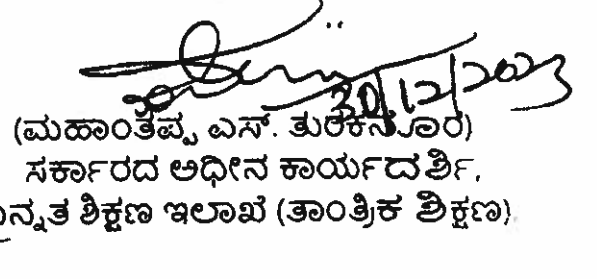 30/12/2023
(ಮಹಾಂತಪ್ಪ ಎಸ್. ತುರಕನೂರ)
ಸರ್ಕಾರದ ಅಧೀನ ಕಾರ್ಯದರ್ಶಿ,
ನ್ನತ ಶಿಕ್ಷಣ ಇಲಾಖೆ (ತಾಂತ್ರಿಕ ಶಿಕ್ಷಣ)